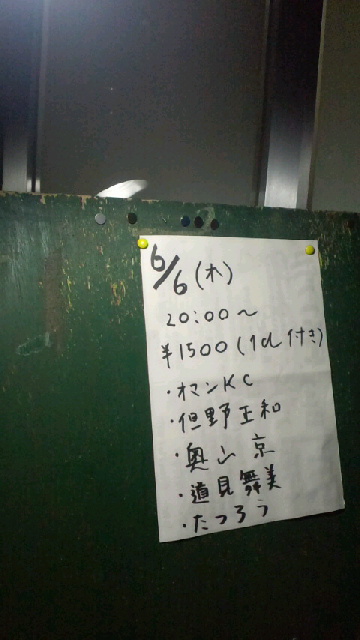 6/6(木)
20:00~
¥1500(1d付き)
・オマンKC
・但野正和
・奥山 京
・道見舞美
・たつろう